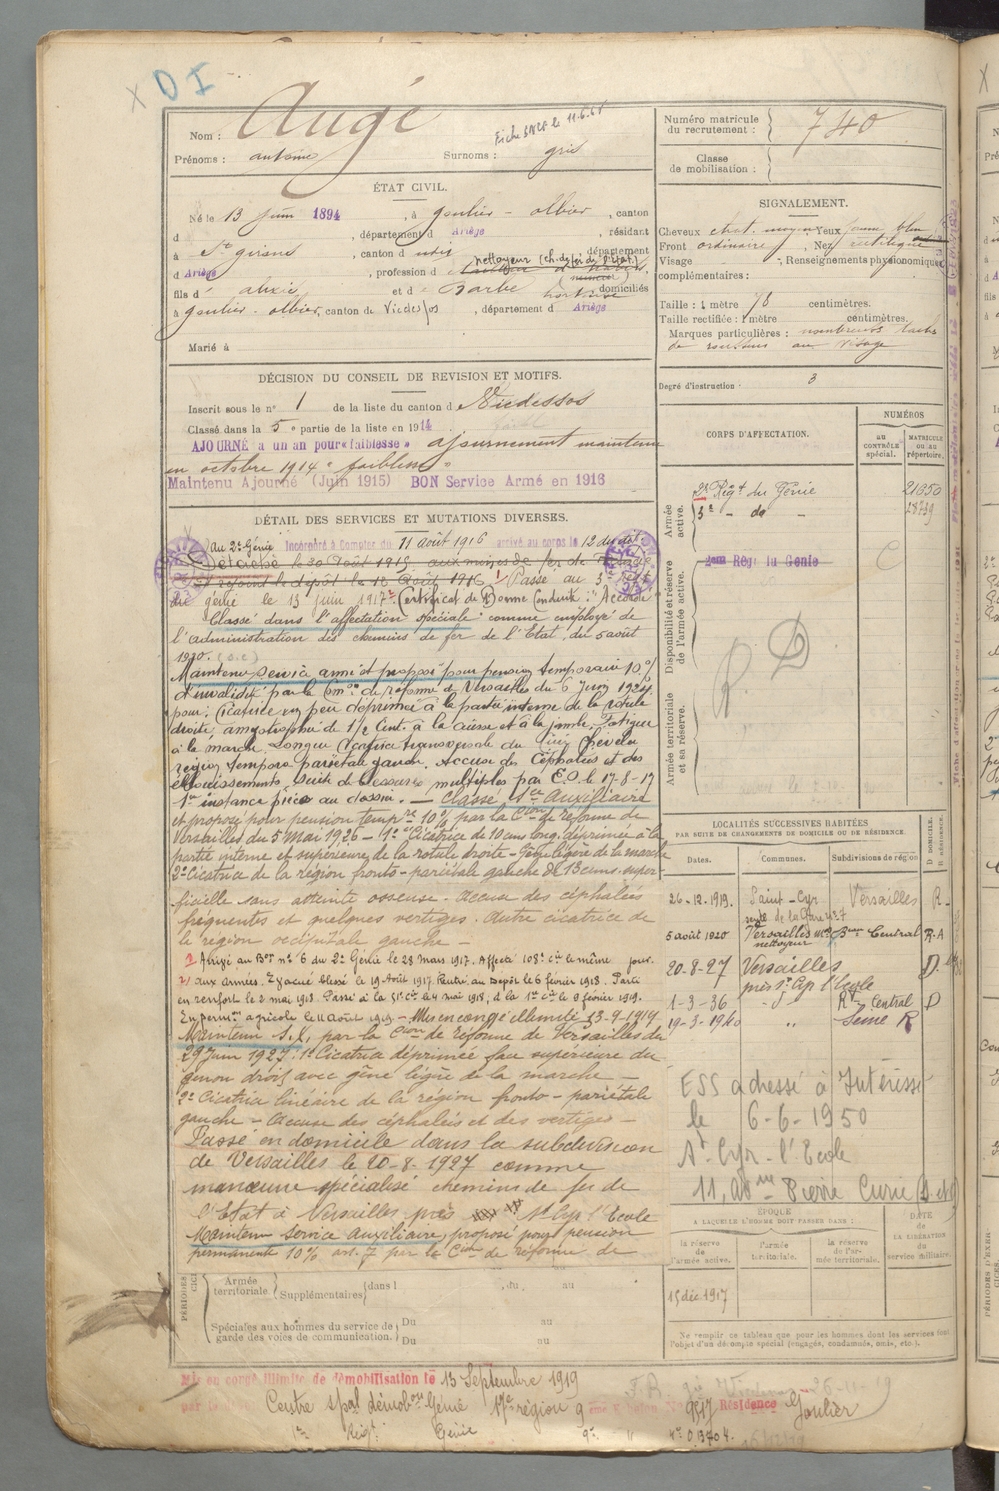 X DI
Nom : Augé
Fiche le 11.6.65
Prénoms : antoine Surnoms : gris
Numéro matricule du recrutement : 740
Classe de mobilisation :
ÉTAT CIVIL.
Né le 13 juin 1894, à goulier - olbier, canton
d , département d Ariège, résidant
à St girons, canton d , département
nettoyeur (ch. de fer de l'État)
d Ariège, profession d
fils d' alexis et d Barbe hortense domiciliés
à goulier - olbier, canton de Vicdessos, département d Ariège
Marié à
SIGNALEMENT.
Cheveux chat. moyen Yeux jaune bleu
Front ordinaire, Nez rectiligne
Visage , Renseignements physionomiques
complémentaires :
Taille : 1 mètre 78 centimètres.
Taille rectifiée : 1 mètre centimètres.
Marques particulières : nombreuses taches
de rousseurs au visage
Degré d'instruction : 3
DÉCISION DU CONSEIL DE REVISION ET MOTIFS.
Inscrit sous le n° 1 de la liste du canton d Vicdessos
Classé dans la 5e partie de la liste en 1914
AJOURNÉ à un an pour « faiblesse » ajournement maintenu
en octobre 1914 " faiblesse "
Maintenu Ajourné (Juin 1915) BON Service Armé en 1916
DÉTAIL DES SERVICES ET MUTATIONS DIVERSES.
au 2e Génie Incorporé à Compter du 11 août 1916 arrivé au corps le 12 du dit
Détaché le 30 Août 1915 aux mines de fer de
rejoint le dépôt le 16 Août 1916. Passé au 3e Régt
du génie le 13 juin 1917. Certificat de Bonne Conduite : "Accordé"
Classé dans l'affectation spéciale : comme employé de
l'administration des chemins de fer de l'Etat, du 5 août
1920.
Maintenu service armé et proposé pour pension temporaire 10%
d'invalidité par la Cion de réforme de Versailles du 6 Juin 1924.
pour : Cicatrice un peu déprimée à la partie interne de la rotule
droite, amyotrophie de 1/2 Cent. à la cuisse et à la jambe. Fatigue
à la marche. Longue Cicatrice transversale du Cuir Chevelu
région temporo pariétale gauche. Accuse des Céphalées et des
éblouissements, suite de blessures multiples par E.O. le 17-8-17
1re instance pièces au dossier. — Classé Sce Auxiliaire
et proposé pour pension tempre 10% par la Cion de réforme de
Versailles du 5 Mai 1926 — 1° Cicatrice de 10 cms long. déprimée à la
partie interne et supérieure de la rotule droite - Gêne légère de la marche
2° Cicatrice de la région fronto - pariétale gauche de 13 cms. super-
ficielle sans atteinte osseuse. Accuse des céphalées
fréquentes et quelques vertiges. Autre cicatrice de
la région occipitale gauche —
1) Dirigé au Bon n° 6 du 2e Génie le 28 mars 1917. Affecté 108e cie le même jour.
2) aux armées. Evacué blessé le 19 Août 1917. Rentré au Dépôt le 6 février 1918. Parti
en renfort le 2 mai 1918. Passé à la 51e cie le 4 mai 1918, à la 1re cie le 9 février 1919.
En permion agricole le 11 Août 1919 - Mis en congé illimité 13-9-1919
Maintenu S.X, par la Cion de réforme de Versailles du
29 Juin 1927. 1° Cicatrice déprimée face supérieure du
genou droit avec gêne légère de la marche —
2° Cicatrice linéaire de la région fronto - pariétale
gauche - Accuse des céphalées et des vertiges —
Passé en domicile dans la subdivision
de Versailles le 20-8-1927 comme
manœuvre spécialisé chemins de fer de
l'Etat à Versailles près St Cyr l'Ecole
Maintenu service auxiliaire, proposé pour pension
permanente 10% art. 7 par la Cion de réforme de
CORPS D'AFFECTATION.
NUMÉROS
AU CONTRÔLE SPÉCIAL.
MATRICULE OU AU RÉPERTOIRE.
Armée active.
2e Régt du Génie 21650
3e - do - 28739
Disponibilité et réserve de l'armée active.
2ème Régt du Génie
R. D
Armée territoriale et sa réserve.
LOCALITÉS SUCCESSIVES HABITÉES
PAR SUITE DE CHANGEMENTS DE DOMICILE OU DE RÉSIDENCE.
D. DOMICILE. R. RÉSIDENCE.
Dates. Communes. Subdivisions de région
26.12.1919. Saint-Cyr Versailles R
route de la Gare n° 7
5 août 1920 Versailles Beau Central R.A
nettoyeur
20-8-27 Versailles D.
près St Cyr l'Ecole
1-3-36 d° Rt Central D
19-3-1940 " Seine R
ESS adressé à Intéressé
le 6-6-1950
St-Cyr-l'Ecole
11, Avue Pierre Curie
ÉPOQUE
A LAQUELLE L'HOMME DOIT PASSER DANS :
DATE de LA LIBÉRATION du service militaire.
la réserve de l'armée active. l'armée territoriale. la réserve de l'armée territoriale.
15 déc 1917
Ne remplir ce tableau que pour les hommes dont les services font
l'objet d'un décompte spécial (engagés, condamnés, omis, etc.).
Armée territoriale. Supplémentaires dans l , du au
Spéciales aux hommes du service de garde des voies de communication. Du au
Du au
Mis en congé illimité de démobilisation le 13 Septembre 1919
par le Centre spal démobon Génie 17e région 9ème Echelon No 9517 Résidence Goulier
1er Régt Génie 9e " n° D.13704.